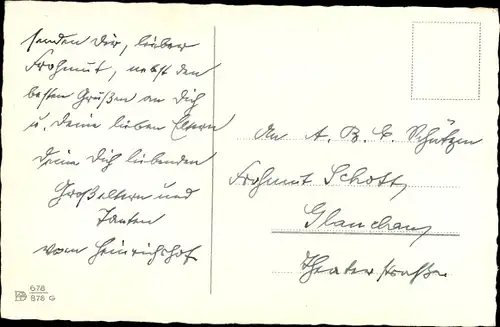 senden Dir, lieber
Frohmut, nebst den
besten Grüßen an Dich
u. Deine lieben Eltern
Deine Dich liebenden
Großeltern und
Tanten
vom Heinrichshof
An A. B. C. Schützen
Frohmut Schott,
Glauchau,
Theaterstraße
678
878 G